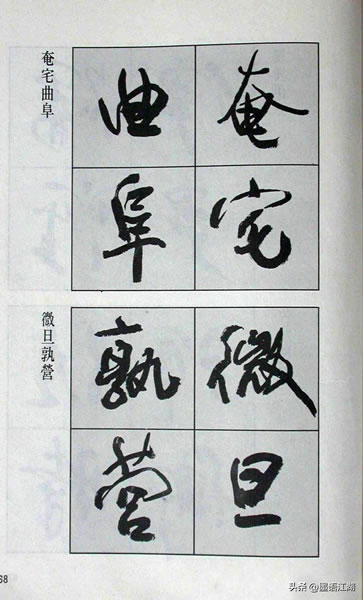 奄宅
曲阜
奄宅曲阜
微旦
孰營
微旦孰營
68
头条 @墨语江湖